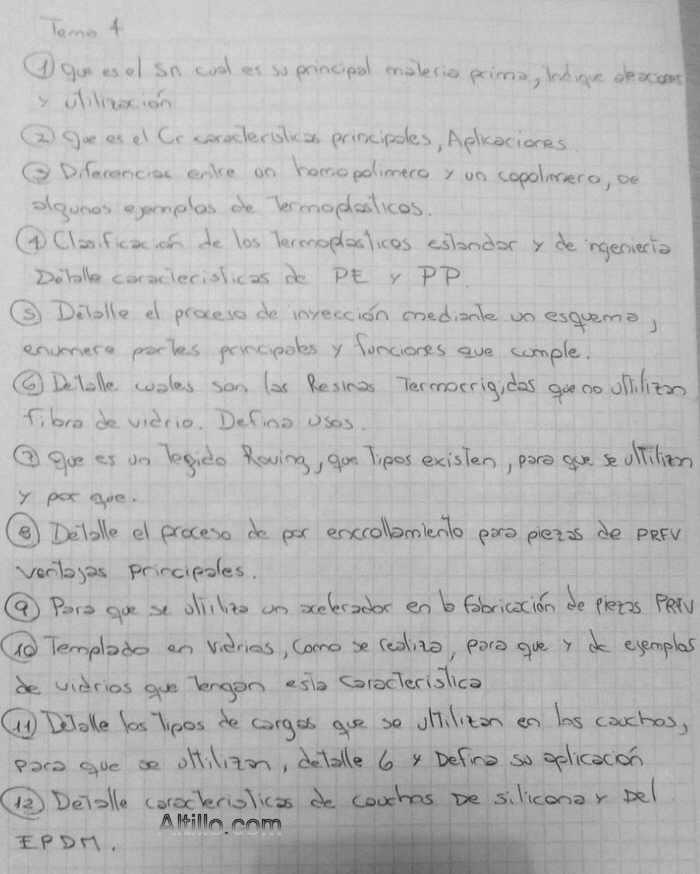 Tema 4
① Que es el Sn cual es su principal materia prima, Indique aleaciones
y utilización
② Que es el Cr caracteristicas principales, Aplicaciones.
③ Diferencias entre un homopolimero y un copolimero, De
algunos ejemplos de Termoplasticos.
④ Clasificación de los Termoplasticos estandar y de ingenieria
Detalle caracteristicas de PE y PP.
⑤ Detalle el proceso de inyección mediante un esquema,
enumere partes principales y funciones que cumple.
⑥ Detalle cuales son las Resinas Termorrigidas que no utilizan
fibra de vidrio. Defina usos.
⑦ Que es un Tegido Roving, que Tipos existen, para que se utilizan
y por que.
⑧ Detalle el proceso de por enrrollamiento para piezas de PRFV
ventajas principales.
⑨ Para que se utiliza un acelerador en la fabricación de piezas PRFV
⑩ Templado en vidrios, Como se realiza, para que y de ejemplos
de vidrios que tengan esta caracteristica
⑪ Detalle los Tipos de cargas que se ultilizan en los cauchos,
para que se ultilizan, detalle 6 y Defina su aplicación
⑫ Detalle caracteristicas de cauchos De silicona y Del
EPDM.
Altillo.com